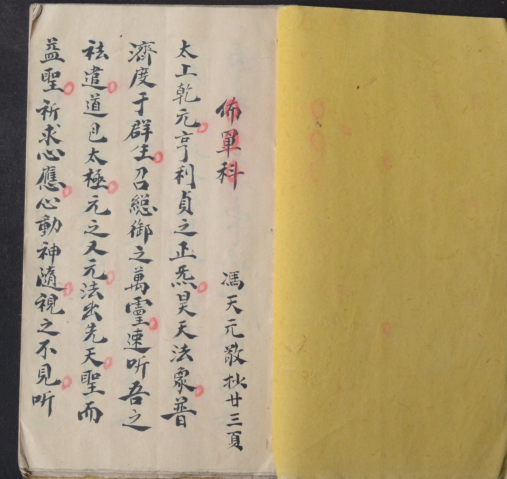 佈單科 馮天元敬抄廿三頁
太上乾元亨利貞之正炁昊天法象普
濟度于群生召總御之萬靈速听吾之
袪遣道已太極元之又元法出先天聖而
益聖祈求心應心動神隨視之不見听